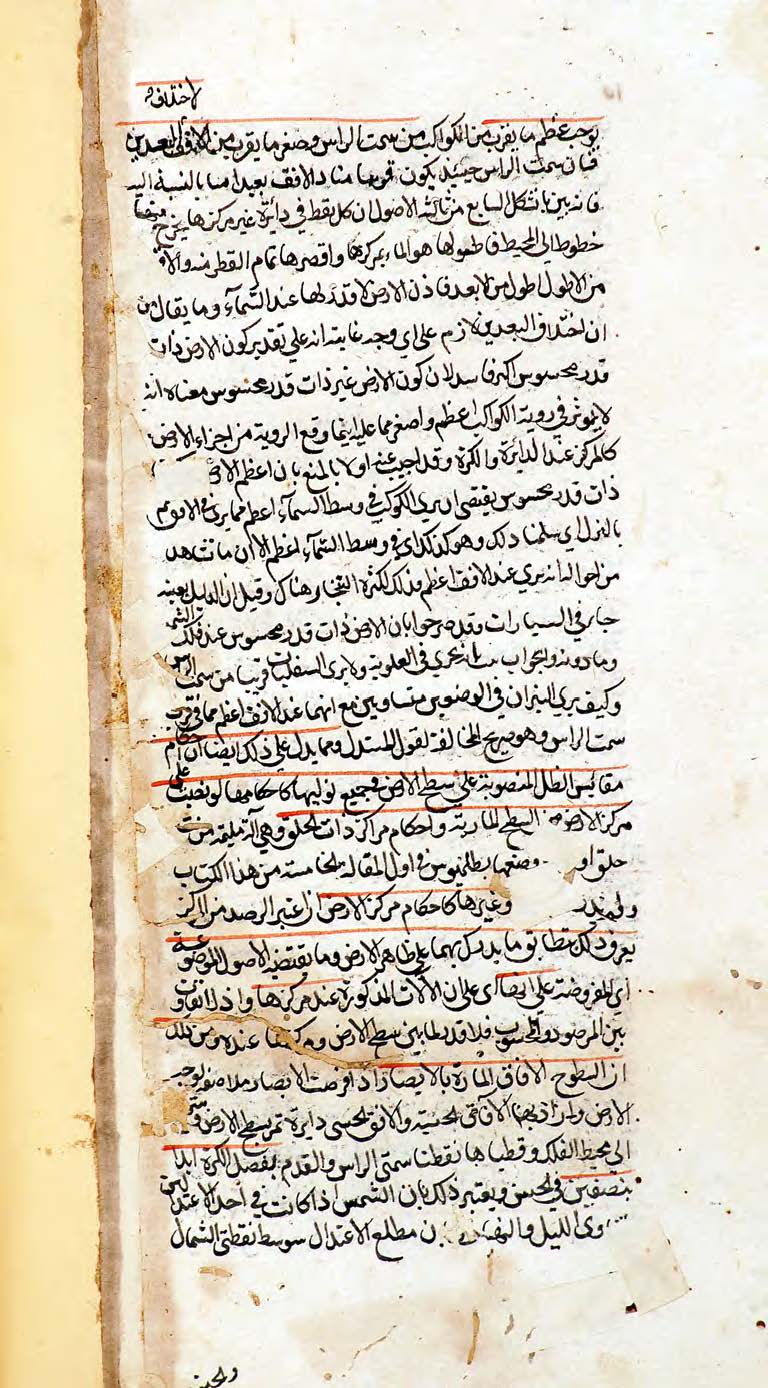 لاختلاف
يوجب عظم ما يقرب من الكواكب من سمت الراس وصغر ما يقرب من الافق البعدين
فان سمت الراس حينئذ يكون قربها منا والافق بعيدا منا بالنسبة اليه
فانه بين بالشكل السابع من ثالثة الاصول ان كل نقطة في دائرة غير مركزها يخرج منها
خطوط الى المحيط فاطولها هو المار بمركزها واقصرها تمام القطر منه والاقرب
من الاطول اطول من الابعد فاذن الارض لا قدر لها عند السمآء وما يقال من
ان اختلاف البعدين لازم على اي وجه غايته انه على تقدير كون الارض ذات
قدر محسوس اكبر فاسد لان كون الارض غير ذات قدر محسوس معناه انه
لا يؤثر في روية الكواكب اعظم واصغر مما عليه اينما وقع الروية من اجزاء الارض
كالمركز عند الدائرة والكرة وقد اجيب عنه اولا بالمنع بان اعظم الارض
ذات قدر محسوس يقتضي ان يرى الكوكب في وسط السمآء اعظم مما يرى في الافق ثم
بالنزل اي سلمنا ذلك وهو كذلك اي في وسط السمآء اعظم الا ان ما نشاهد
من احواله انه يرى عند الافق اعظم فذلك لكثرة البخار هناك وقيل ان الدليل بعينه
جار في السيارات وقد صرحوا بان الارض ذات قدر محسوس عند فلك الشمس
وما دونه والجواب انه يجري في العلوية ولا يرى السفليات قريبا من سمت الراس
وكيف يرى النيران في الوضعين متساويين مع انهما عند الافق اعظم مما في قرب
سمت الراس وهو صريح المخالفة لقول المستدل ومما يدل على ذلك ايضا ان احكام
مقائيس الظل المنصوبة على سطح الارض في جميع نواليها كاحكامها لو نصبت على
مركز الارض السطح المارية واحكام مراكز ذات الحلق وهي آلة ملتئمة من ست
حلق او وصفها بطلميوس في اول المقالة الخامسة من هذا الكتاب
وغيرها كاحكام مركز الارض ان اعتبر الرصد من المركز
يعرف ذلك بتطابق ما يدرك بهما على ظاهر الارض وما يقتضيه الاصول الموضوعة
اي المفروضة على انها اي على ان الآلات المذكورة عند مركزها واذ لا تفاوت
بين المرصود والمحسوب فلا قدر لما بين سطح الارض ومركزها عنده ومن ذلك
ان السطوح الافاق المارة بالابصار اذ افرضت الابصار ملاصقة لوجه
الارض والمراد بهذه الآفاق الحسية والافق الحسي دايرة تمر بسطح الارض
الى محيط الفلك وقطباها نقطتا سمتي الراس والقدم يفصل الكرة ابدا
بنصفين في الحس ويعتبر ذلك بان الشمس اذا كانت في احد الاعتدالين
الليل والنهار مطلع الاعتدال سوسط نقطتي الشمال